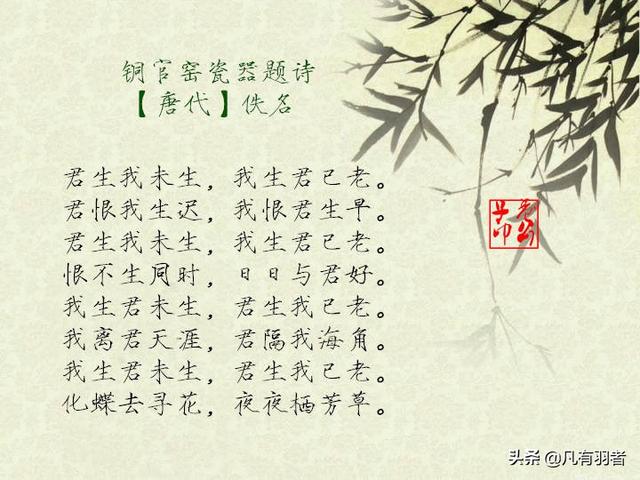 铜官窑瓷器题诗
【唐代】佚名
君生我未生，我生君已老。
君恨我生迟，我恨君生早。
君生我未生，我生君已老。
恨不生同时，日日与君好。
我生君未生，君生我已老。
我离君天涯，君隔我海角。
我生君未生，君生我已老。
化蝶去寻花，夜夜栖芳草。
头条 @凡有羽者